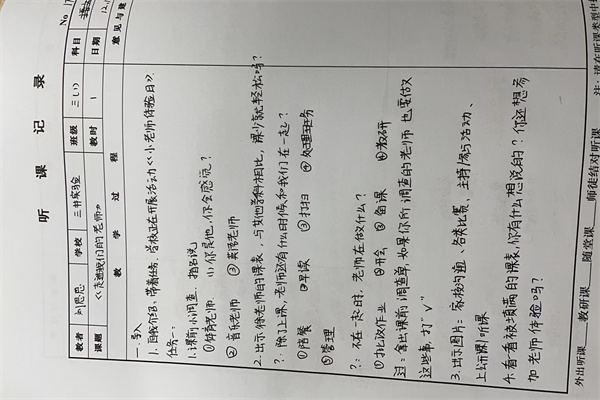 听 课 记 录
No 17
教者 刘思思 学校 三书实验 班级 三(1) 科目
课题 《走近我们的老师》 教时 1 日期 12.
教 学 过 程 意见与建
一、导入
1. 自我介绍、带着任务, 学校正在开展活动《小老师体验日》
任务一:
1. 课前小调查, 指名说
①体育老师 (1) 你是他,你会感觉?
② 音乐老师 ③ 英语老师
2. 出示徐老师的课表, 与其他学科相比, 课少就轻松吗?
?: 除了上课, 老师还有什么时候和我们在一起?
①陪餐 ②早读 ③打扫 ④处理班务
⑤管理
?: 不在一起时, 老师在做什么?
①批改作业 ②开会 ③备课 ④教研
过: 拿出课前调查单, 如果你所调查的老师 也要做又
这些事, 打“√”
3. 出示图片: 家校沟通、各类比赛、主持/参与活动、
上公开课/听课
乐看看被填满的课表, 你有什么想说的? 你还想参
加老师体验吗?
外出听课____ 教研课____ 随堂课____ 师徒结对听课
注:请在听课类型中